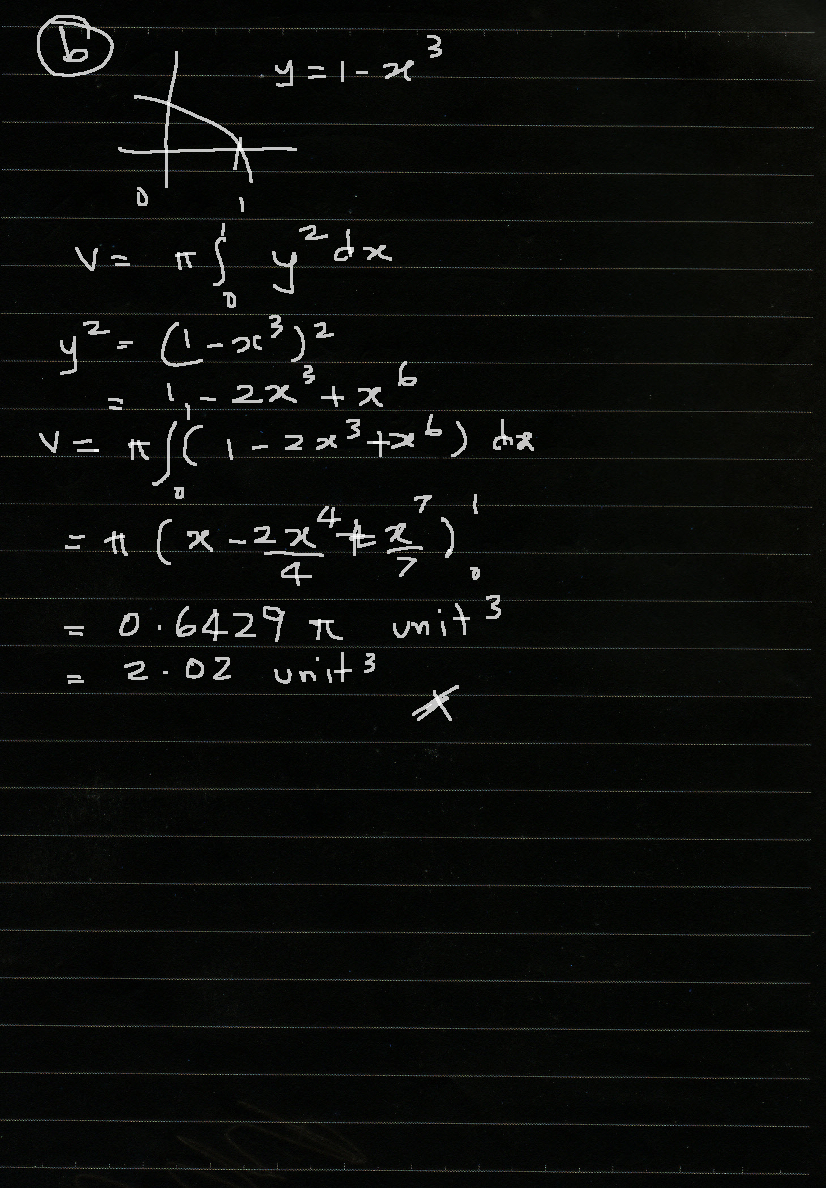 b
y = 1 - x³
0 1
V = π ∫₀¹ y² dx
y² = (1 - x³)²
= 1 - 2x³ + x⁶
V = π ∫₀¹ (1 - 2x³ + x⁶) dx
= π (x - 2x⁴/4 + x⁷/7)₀¹
= 0.6429 π unit³
= 2.02 unit³